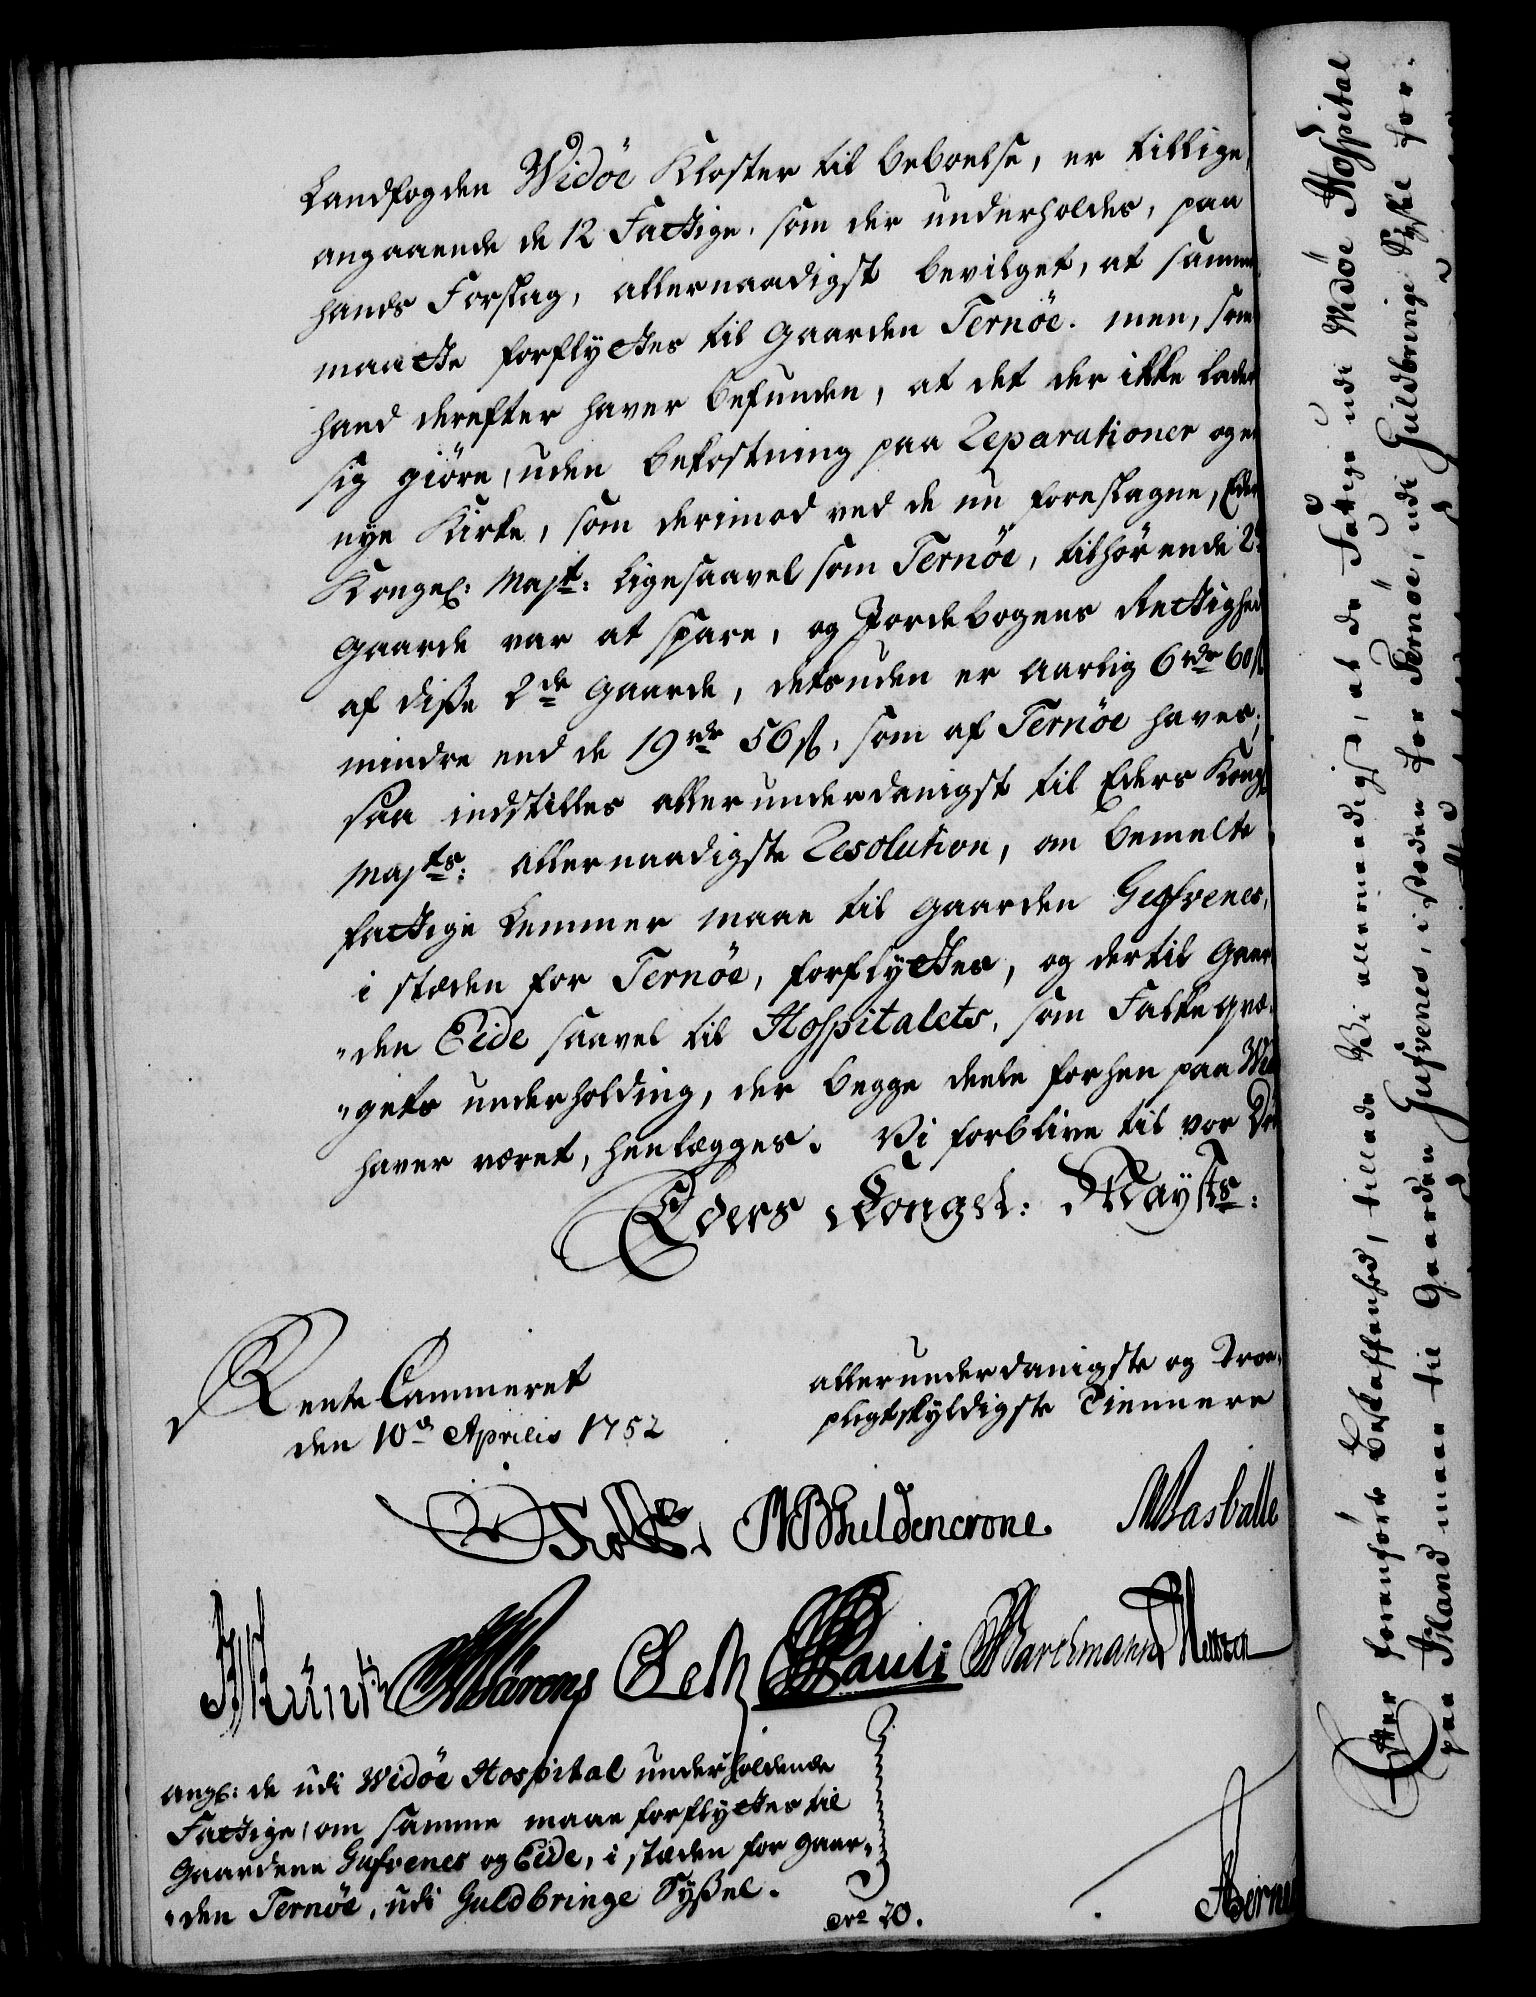 Landfogden Widöe Kloster til beboelse, er tillige
angaaende de 12 Fattige, som der underholdes, paa
hands Forslag, allernaadigst bevilget, at samme
maatte forflyttes til Gaarden Ternöe. men, som
hand derefter haver befunden, at det der ikke lader
sig giöre, uden bekostning paa Reparationer og en
nye Kirke, som derimod ved de nu foreslagne, Eders
Kongel: Majt: ligesaavel som Ternöe, tilhörende 2de
Gaarde var at spare, og Jordebogens Rettighed
af disse 2de Gaarde, desuden er aarlig 6 rdr 60 ß
mindre end de 19 rdr 56 ß, som af Ternöe haves;
saa indstilles allerunderdanigst til Eders Kongl
Majts: allernaadigste Resolution, om bemelte
fattige Lemmer maae til Gaarden Gufvenes,
i stæden for Ternöe, forflyttes, og dertil Gaar
"den Eide saavel til Hospitalets, som Falke qvæ-
"gets underholding, der begge deele forhen paa Wid
haver været, henlægges. Vi forblive til vor Dö
Eders Kongel: Mayts:
Rente Cammeret
den 10de Aprilis 1752
allerunderdanigste og Troe-
pligtskyldigste Tiennere
Güldencrone. Wasballe
Pauli Barchmann
ang: de udi Widöe Hospital underholdende
Fattige, om samme maae forflyttes til
Gaardene Gufvenes og Eide, i stæden for Gaar-
"den Ternöe, udi Guldbringe Syssel.
No 20.
Efter foranförte Beskaffenhed, tillade Vi allernaadigst, at de Fattige udi Widöe Hospital
paa Island maae til Gaarden Gufvenes, i stæden for Ternöe, udi Guldbringe Sysse for-